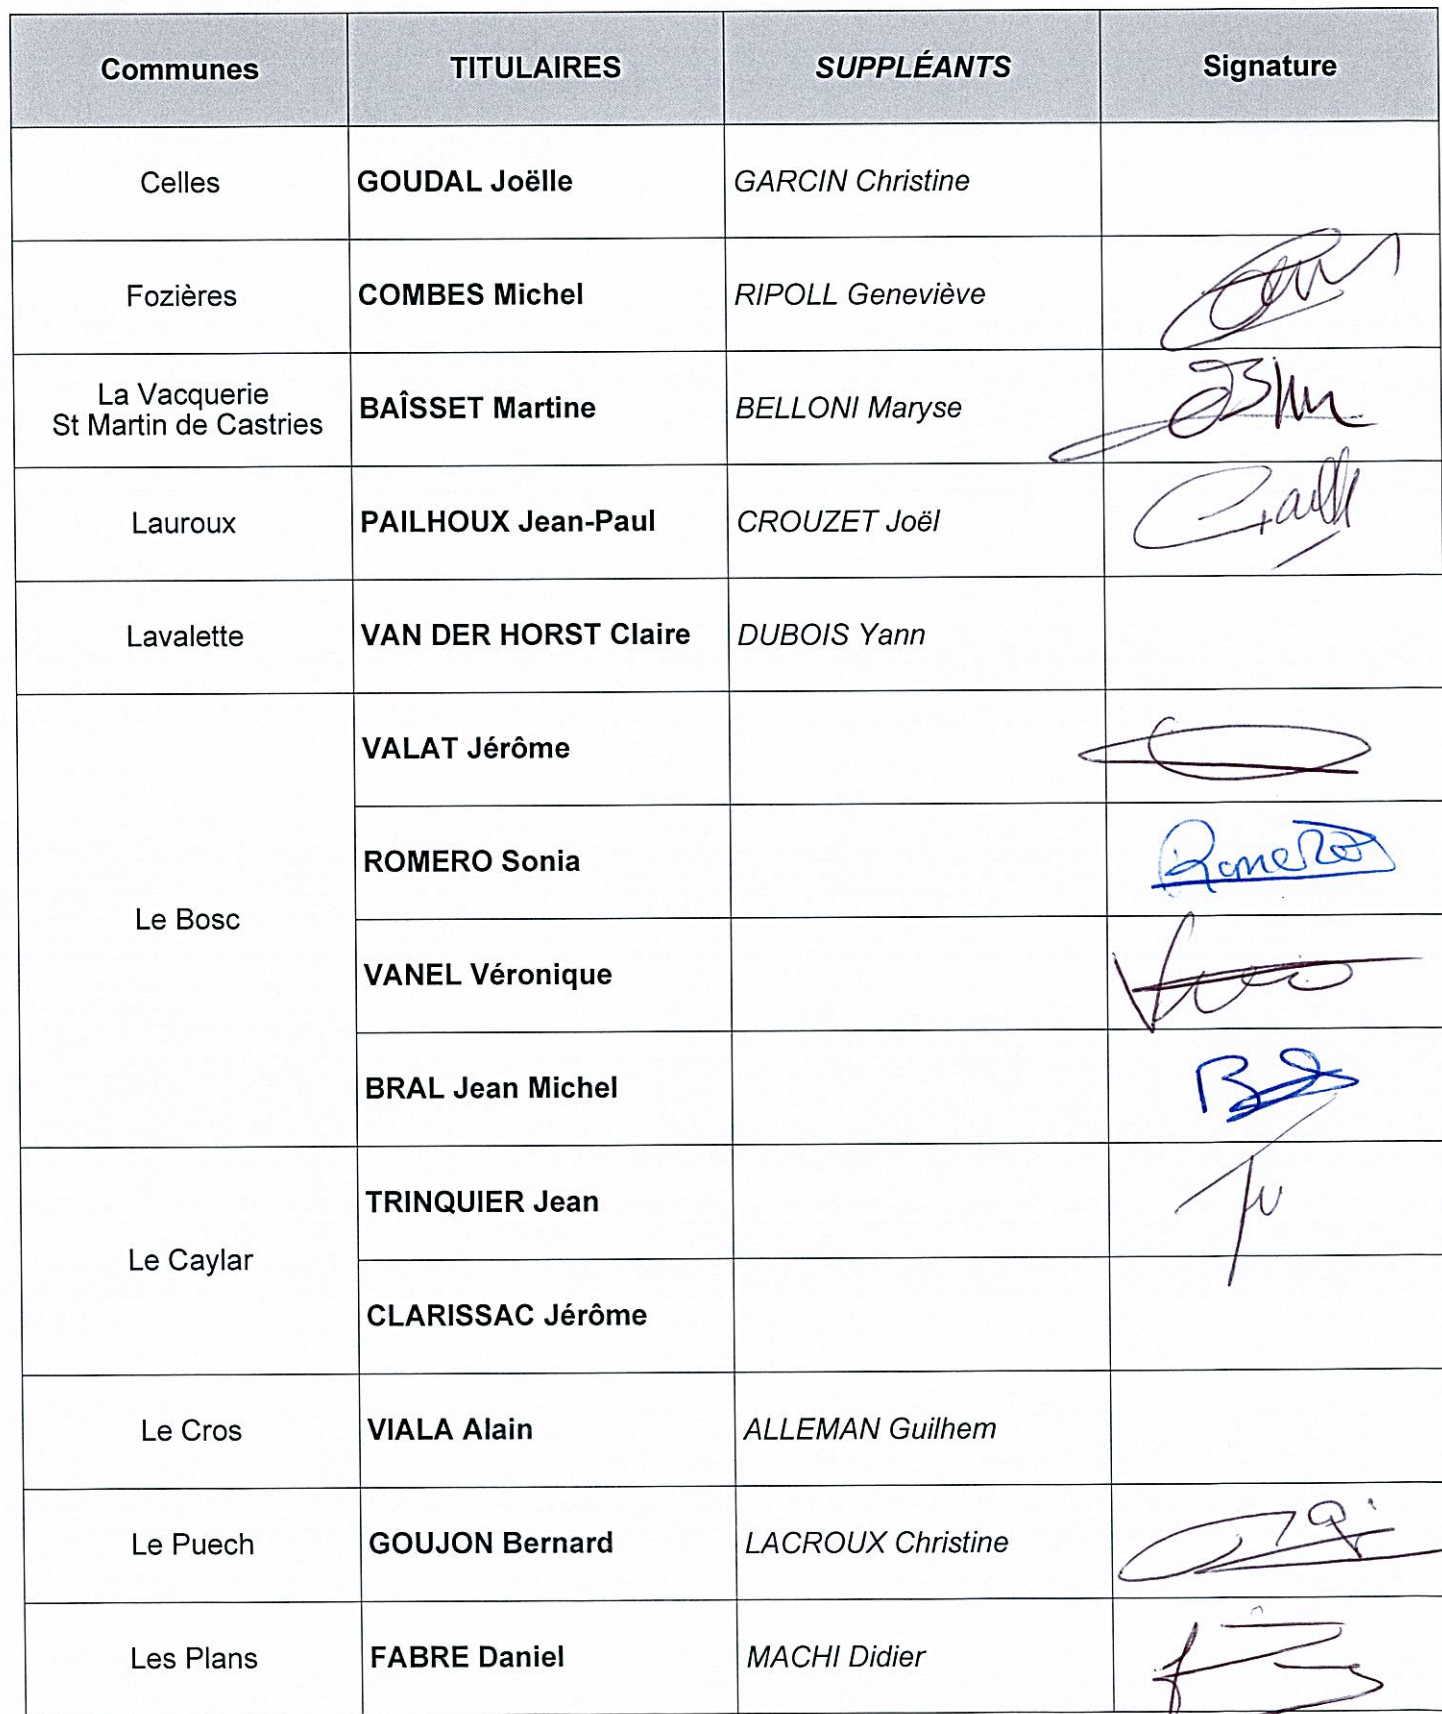 Communes TITULAIRES SUPPLÉANTS Signature
Celles GOUDAL Joëlle GARCIN Christine
Fozières COMBES Michel RIPOLL Geneviève
La Vacquerie
St Martin de Castries BAÎSSET Martine BELLONI Maryse
Lauroux PAILHOUX Jean-Paul CROUZET Joël
Lavalette VAN DER HORST Claire DUBOIS Yann
Le Bosc
VALAT Jérôme
ROMERO Sonia Romero
VANEL Véronique
BRAL Jean Michel
Le Caylar
TRINQUIER Jean
CLARISSAC Jérôme
Le Cros VIALA Alain ALLEMAN Guilhem
Le Puech GOUJON Bernard LACROUX Christine
Les Plans FABRE Daniel MACHI Didier